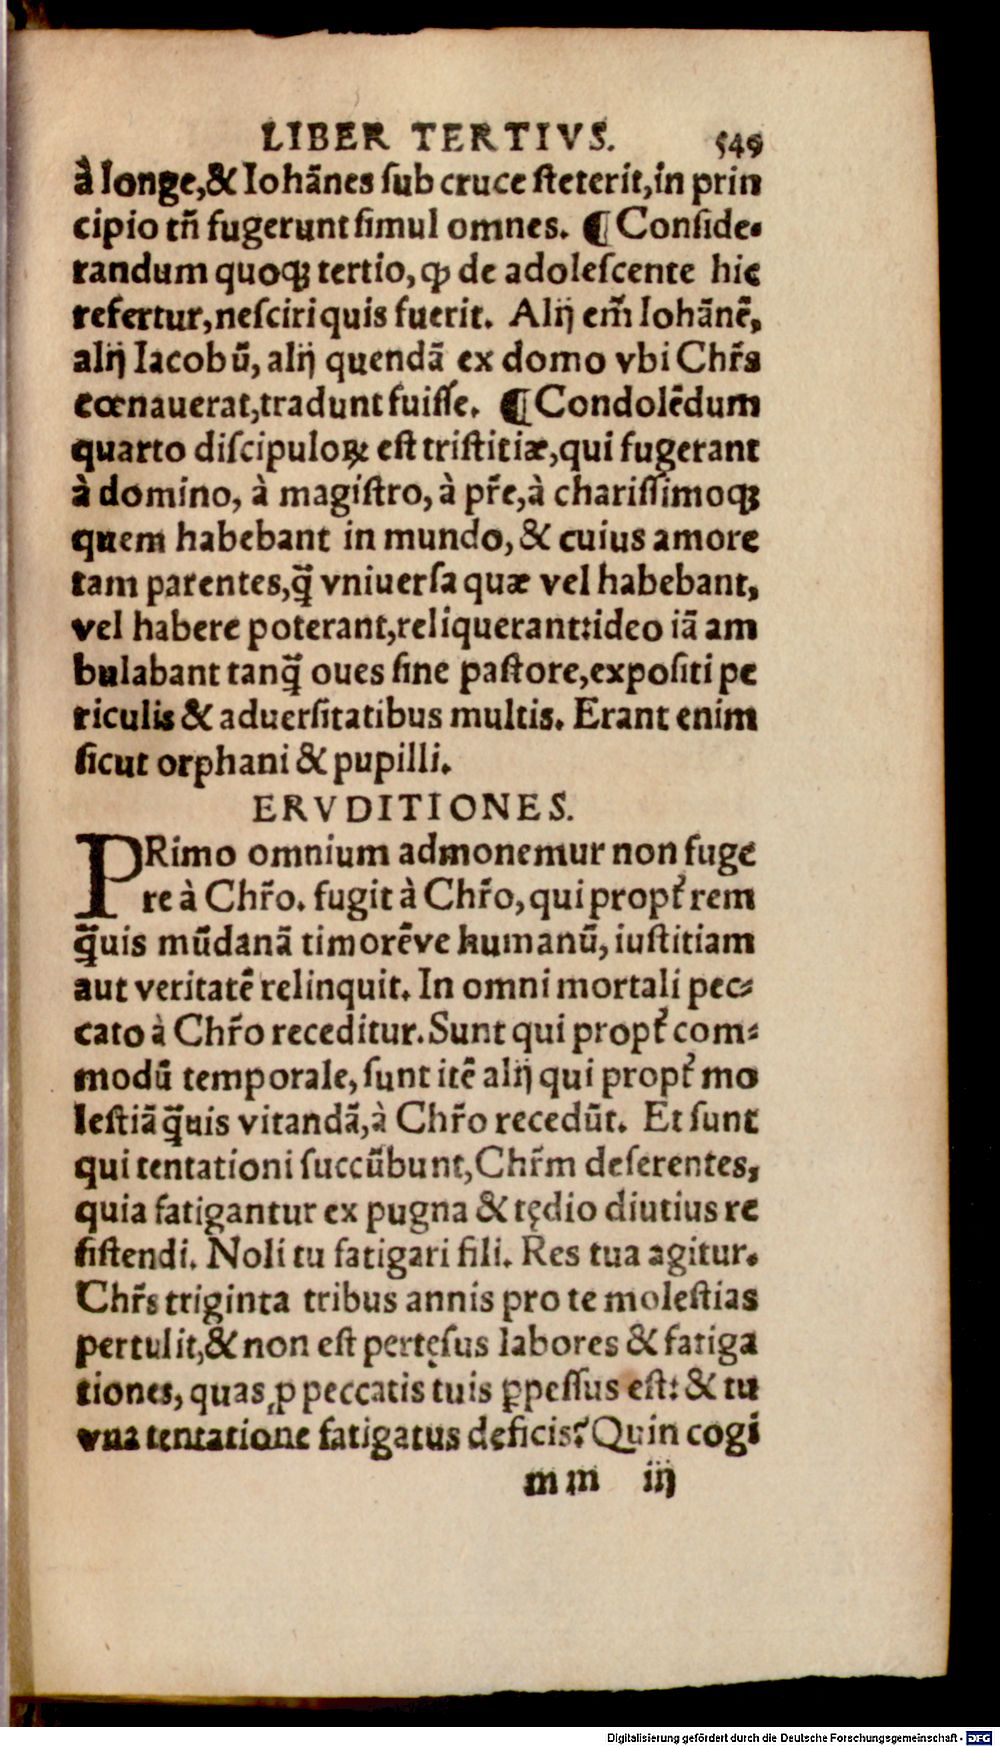 LIBER TERTIVS. 549
à longe,& Iohãnes ſub cruce ſteterit,in prin
cipio tñ fugerunt ſimul omnes. ¶ Conſide-
randum quoqꝫ tertio, ꝙ de adoleſcente hic
refertur,neſciri quis fuerit. Alij em̃ Iohãnẽ,
alij Iacobũ, alij quendã ex domo vbi Chr̃s
cœnauerat,tradunt fuiſſe. ¶ Condolẽdum
quarto diſcipuloꝝ eſt triſtitiæ,qui fugerant
à domino, à magiſtro, à pr̃e,à chariſſimoqꝫ
quem habebant in mundo, & cuius amore
tam parentes,q̃ vniuerſa quæ vel habebant,
vel habere poterant,reliquerant:ideo iã am
bulabant tanq̃ oues ſine paſtore,expoſiti pe
riculis & aduerſitatibus multis. Erant enim
ſicut orphani & pupilli.
ERVDITIONES.
PRimo omnium admonemur non fuge
re à Chr̃o. fugit à Chr̃o, qui propt̃ rem
q̃uis mũdanã timorẽve humanũ, iuſtitiam
aut veritatẽ relinquit. In omni mortali pec-
cato à Chr̃o receditur. Sunt qui propt̃ com-
modũ temporale, ſunt itẽ alij qui propt̃ mo
leſtiã q̃uis vitandã,à Chr̃o recedũt. Et ſunt
qui tentationi ſuccũbunt,Chr̃m deſerentes,
quia fatigantur ex pugna & tędio diutius re
ſiſtendi. Noli tu fatigari fili. Res tua agitur.
Chr̃s triginta tribus annis pro te moleſtias
pertulit,& non eſt pertęſus labores & fatiga
tiones, quas ꝓ peccatis tuis ꝑpeſſus eſt: & tu
vna tentatione fatigatus deficis? Quin cogi
mm iij
Digitalisierung gefördert durch die Deutsche Forschungsgemeinschaft - DFG